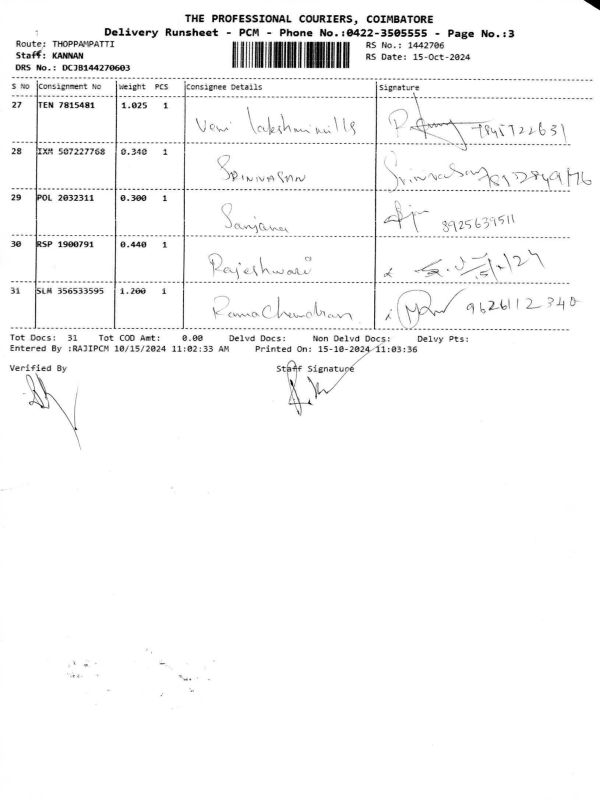 THE PROFESSIONAL COURIERS, COIMBATORE
Delivery Runsheet - PCM - Phone No.:0422-3505555 - Page No.:3
Route: THOPPAMPATTI
RS No.: 1442706
Staff: KANNAN
RS Date: 15-Oct-2024
DRS No.: DCJB144270603
S No Consignment No Weight PCS Consignee Details Signature
27 TEN 7815481 1.025 1 Veni Lakshmi mills
28 IXM 507227768 0.340 1 SRINIVASAN Srinivasan
29 POL 2032311 0.300 1 Sanjana 8925639511
30 RSP 1900791 0.440 1 Rajeshwari
31 SLM 356533595 1.200 1 Ramachandran 9626112340
Tot Docs: 31 Tot COD Amt: 0.00 Delvd Docs: Non Delvd Docs: Delvy Pts:
Entered By :RAJIPCM 10/15/2024 11:02:33 AM Printed On: 15-10-2024 11:03:36
Verified By Staff Signature